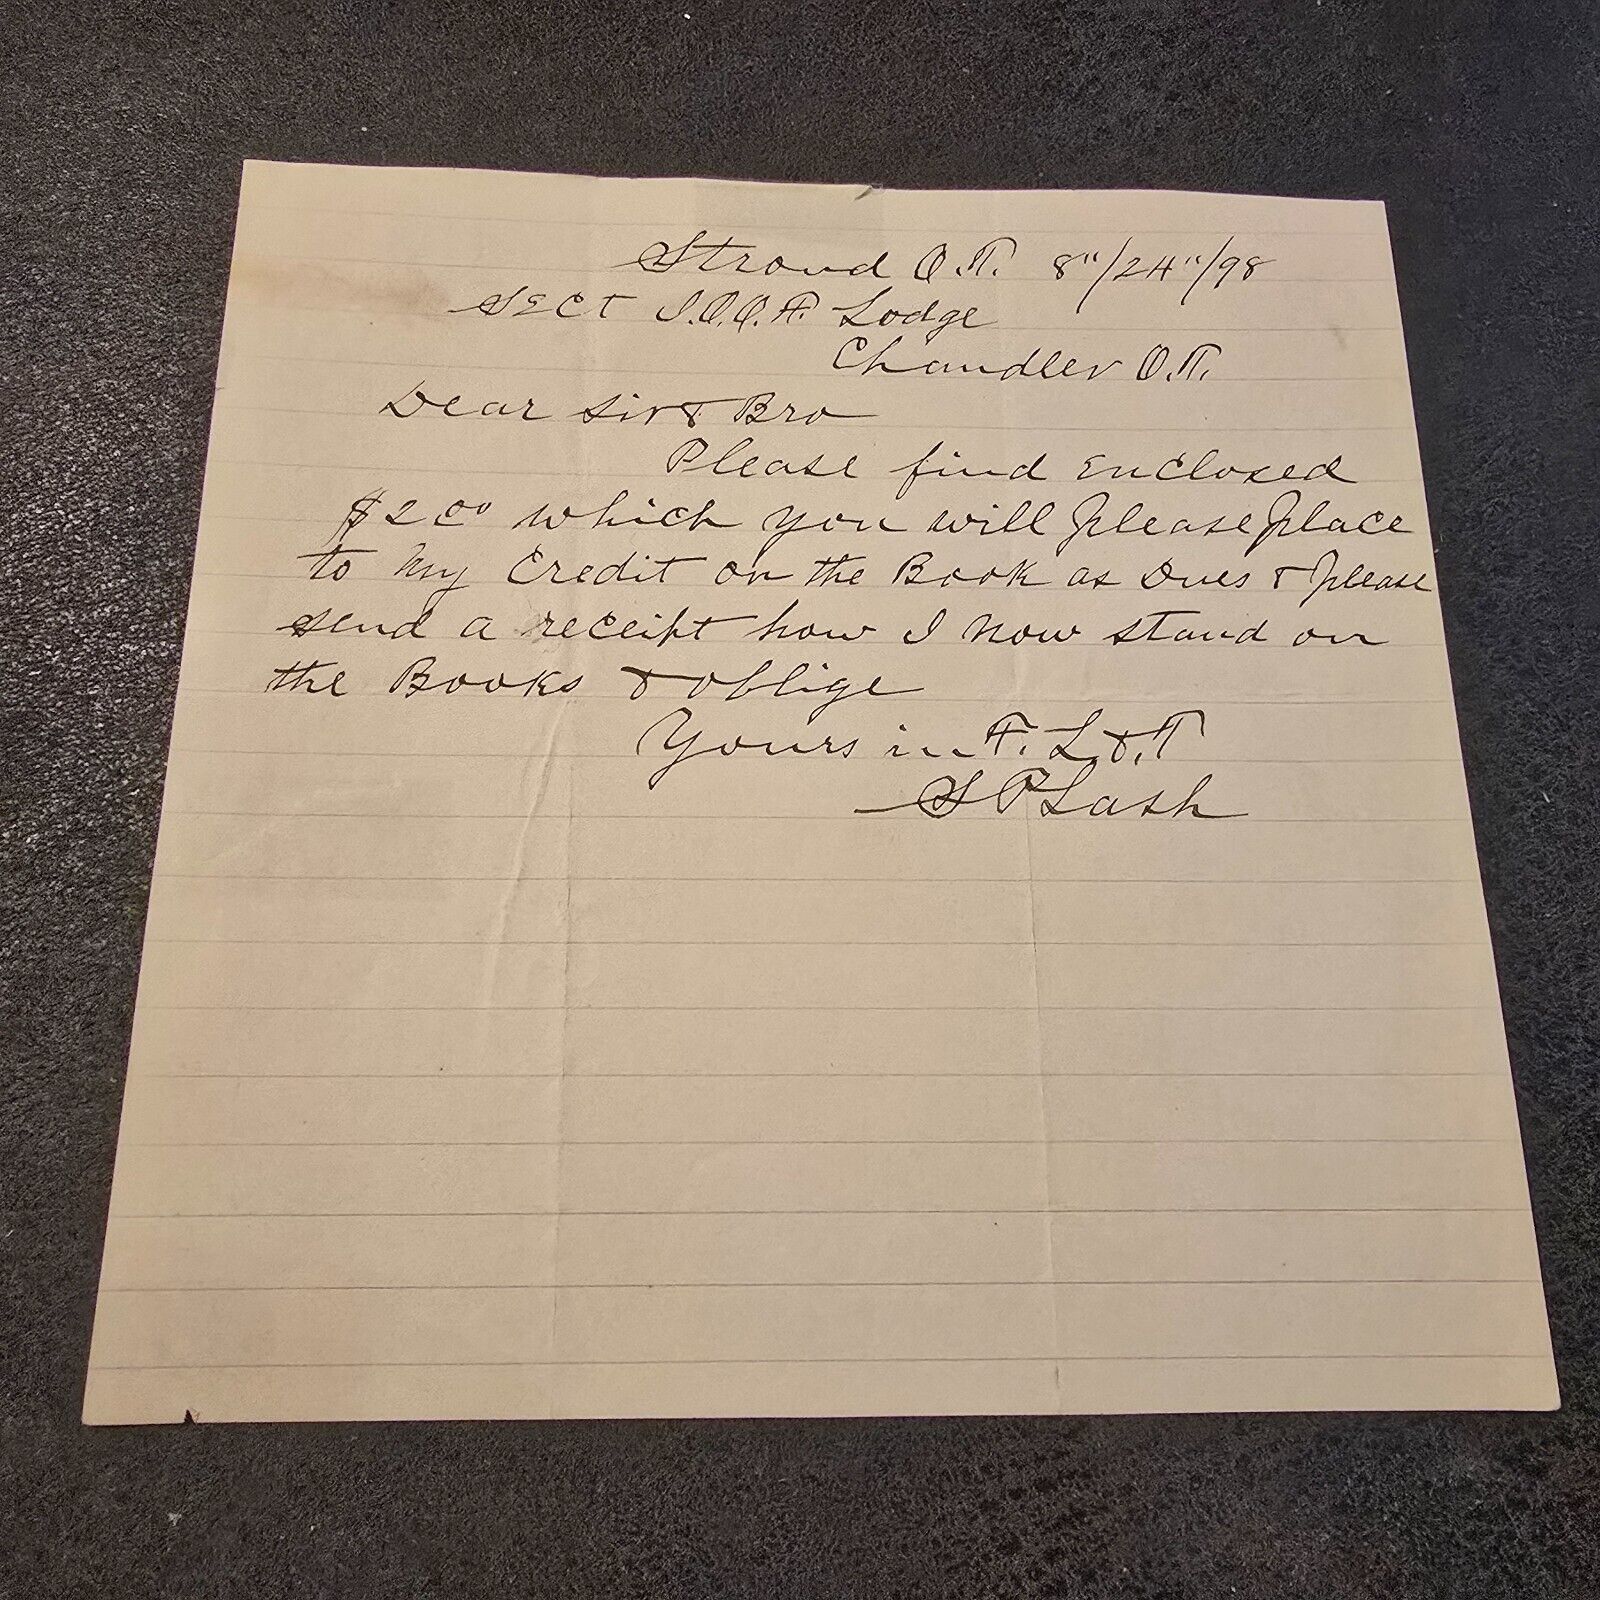 Stroud O.T. 8"/24"/98
Sect I.O.O.F. Lodge
Chandler O.T.
Dear Sir & Bro
Please find Enclosed
which you will please place
to My Credit on the Book as Dues & please
send a receipt how I Now stand on
the Books & oblige
Yours in F. L. & T
S P Lash